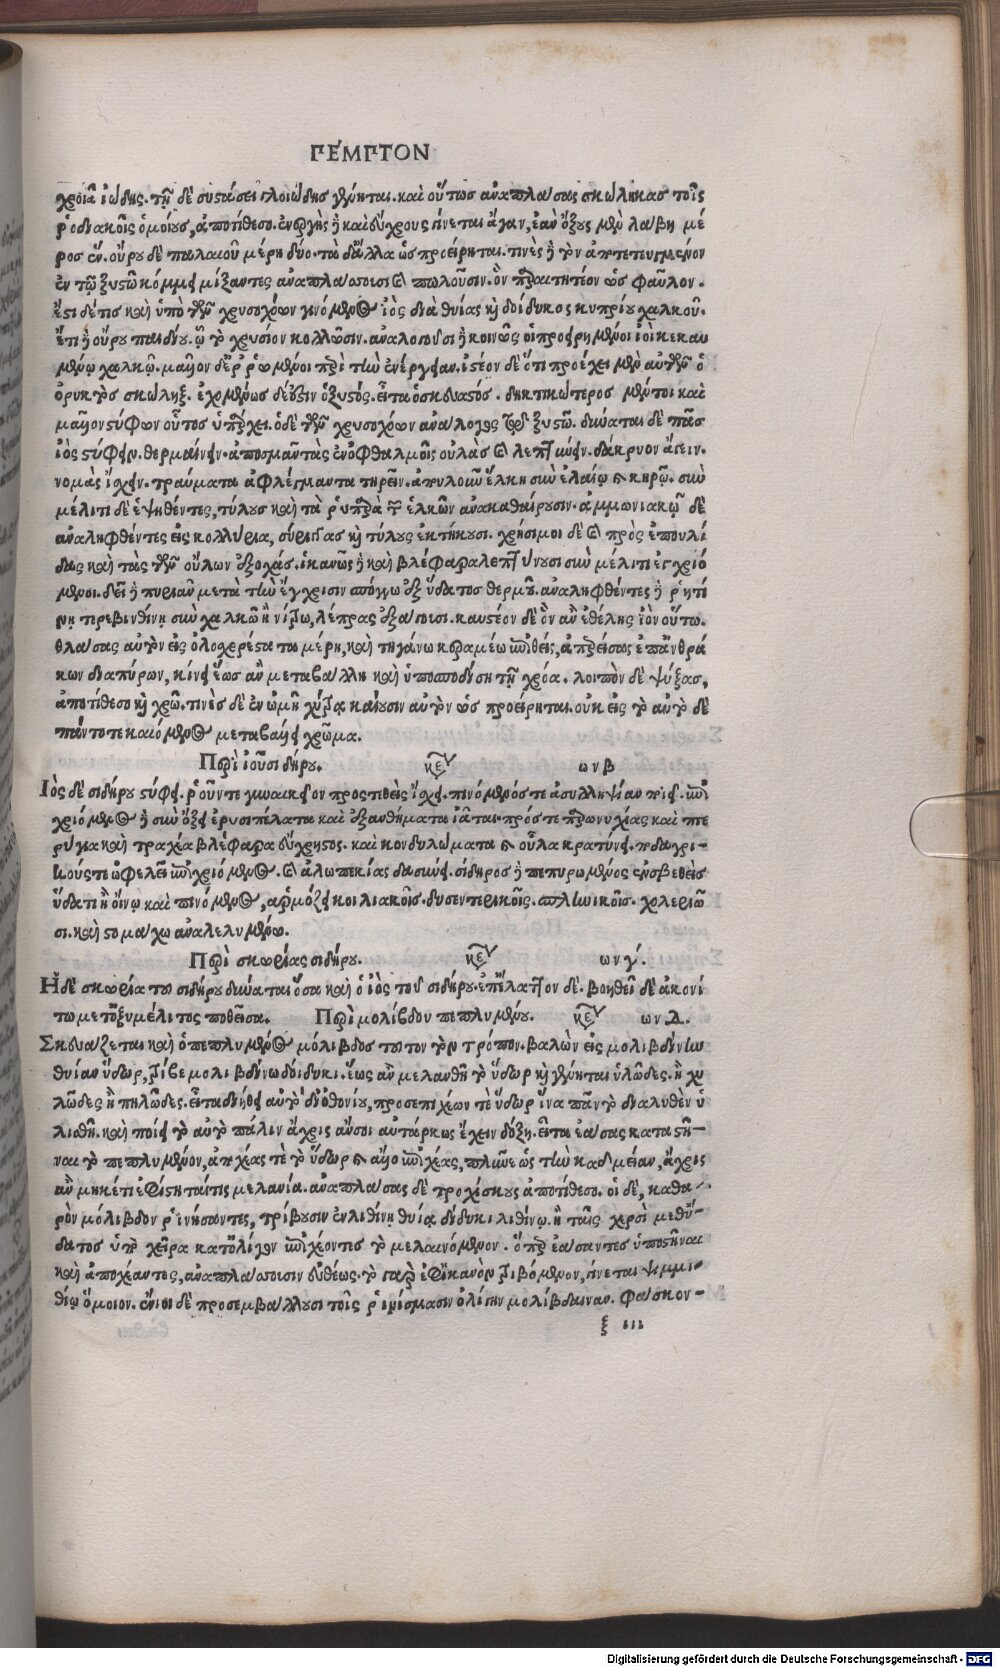 ΠΕΜΠΤΟΝ
χροιᾷ ἰώδης. τῇ δὲ συστάσει γλοιώδης γένηται. καὶ οὕτως ἀναπλάσας σκώληκας τοῖς
ῥοδιακοῖς ὁμοίους, ἀποτίθεσο. ἐνεργὴς ἢ καὶ εὔχρους γίνεται ἄγαν, ἐὰν ὄξους μὲν λάβῃ μέ
ρος ἕν. οὔρου δὲ παλαιοῦ μέρη δύο. τὰ δ᾽ἄλλα ὡς προείρηται. τινὲς ἢ τὸν ἀποτετευγμένον
ἐν τῷ ξυστῷ κόμμει μίξαντες ἀναπλάσσουσι καὶ πωλοῦσιν. ὃν παραιτητέον ὡς φαῦλον.
ἔστι δέ τις καὶ ὑπὸ τῶν χρυσοχόων γινόμενος ἰὸς διὰ θυίας καὶ δοίδυκος κυπρίου χαλκοῦ.
ἔτι ἢ οὔρου παιδίου. ᾧ τὸ χρυσίον κολλῶσιν. ἀναλογοῦσι ἢ κοινῶς οἱ προειρημένοι ἰοὶ κεκαυ
μένῳ χαλκῷ. μᾶλλον δὲ ἐρρωμένοι περὶ τὴν ἐνέργειαν. ἰστέον δὲ ὅτι προέχει μὲν αὐτῶν ὁ
ὀρυκτὸς σκώληξ. ἐχομένως δέ ἐστιν ὁ ξυστός. εἶτα ὁ σκευαστός. δηκτικώτερος μέντοι καὶ
μᾶλλον στύφων οὗτος ὑπάρχει. ὁ δὲ τῶν χρυσοχόων ἀνάλογος τῷ ξυστῷ. δύναται δὲ πᾶς
ἰὸς στύφειν. θερμαίνειν. ἀποσμᾶν τὰς ἐν ὀφθαλμοῖς οὐλὰς καὶ λεπτύνειν. δάκρυον ἄγειν.
νομὰς ἴσχειν. τραύματα ἀφλέγμαντα τηρεῖν. ἀπουλοῦν ἕλκη σὺν ἐλαίῳ καὶ κηρῷ. σὺν
μέλιτι δὲ ἑψηθέντες, τύλους καὶ τὰ ῥυπαρὰ τῶν ἑλκῶν ἀνακαθαίρουσιν. ἀμμωνιακῷ δὲ
ἀναληφθέντες εἰς κολλύρια, σύριγγας καὶ τύλους ἐκτήκουσι. χρήσιμοι δὲ καὶ πρὸς ἐπουλί
δας καὶ τὰς τῶν οὔλων ἐξοχάς. ἱκανῶς ἢ καὶ βλέφαρα λεπτύνουσι σὺν μέλιτι ἐγχριό
μενοι. δεῖ ἢ πυριᾶν μετὰ τὴν ἔγχρισιν σπόγγῳ ἐξ ὕδατος θερμοῦ. ἀναληφθέντες ἢ ῥητί
νῃ τερεβινθίνῃ σὺν χαλκῷ ἢ νίτρῳ, λέπρας ἐξαίρουσι. καυστέον δὲ ὃν ἂν ἐθέλῃς ἰὸν οὕτω.
θλάσας αὐτὸν εἰς ὁλοσχερέστατα μέρη, καὶ τηγάνῳ κεραμέῳ ἐπιθείς, ἀπέρεισαι ἐπ᾽ἀνθρά
κων διαπύρων, κίνει ἕως ἂν μεταβάλλῃ καὶ ὑποσποδίσῃ τῇ χρόᾳ. λοιπὸν δὲ ψύξας,
ἀποτίθεσο καὶ χρῶ. τινὲς δὲ ἐν ὠμῇ χύτρᾳ καίουσιν αὐτὸν ὡς προείρηται. οὐκ εἰς τὸ αὐτὸ δὲ
πάντοτε καιόμενος μεταβάλλει χρῶμα.
Περὶ ἰοῦ σιδήρου. κε ωνβ
Ἰὸς δὲ σιδήρου στύφει. ῥοῦν τε γυναικεῖον προστιθεὶς ἴσχει. πινόμενός τε ἀσυλληψίαν ποιεῖ. ἐπι
χριόμενος ἢ σὺν ὄξει ἐρυσιπέλατα καὶ ἐξανθήματα ἰᾶται. πρός τε παρωνυχίας καὶ πτε
ρύγια καὶ τραχέα βλέφαρα εὔχρηστος. καὶ κονδυλώματα καὶ οὖλα κρατύνει. ποδαγρι-
κούς τε ὠφελεῖ ἐπιχριόμενος. καὶ ἀλωπεκίας δασύνει. σίδηρος ἢ πεπυρωμένος ἐνσβεθεὶς
ὕδατι ἢ οἴνῳ καὶ πινόμενος, ἁρμόζει κοιλιακοῖς. δυσεντερικοῖς. σπληνικοῖς. χολεριῶ
σι. καὶ στομάχῳ ἀναλελυμένῳ.
Περὶ σκωρίας σιδήρου. κε ωνγ.
Ἡ δὲ σκωρία τοῦ σιδήρου δύναται ὅσα καὶ ὁ ἰὸς τοῦ σιδήρου. ἐπ᾽ἔλαττον δέ. βοηθεῖ δὲ ἀκονί
τῳ μετ᾽ὀξυμέλιτος ποθεῖσα. Περὶ μολίβδου πεπλυμένου. κε ωνδ.
Σκευάζεται καὶ ὁ πεπλυμένος μόλιβδος τοῦτον τὸν τρόπον. βαλὼν εἰς μολιβδίνην
θυίαν ὕδωρ, τρίβε μολιβδίνῳ δοίδυκι. ἕως ἂν μελανθῇ τὸ ὕδωρ καὶ γένηται ἰλῶδες. ἢ χυ
λῶδες ἢ πηλῶδες. εἶτα διήθει αὐτὸ δι᾽ὀθονίου, προσεπιχέων τε ὕδωρ ἵνα πᾶν τὸ διαλυθὲν ὑ
λισθῇ. καὶ ποίει τὸ αὐτὸ πάλιν ἄχρις ἂν σοι αὐτάρκως ἔχειν δόξῃ. εἶτα ἐάσας καταστῆ-
ναι τὸ πεπλυμένον, ἀποχέας τε τὸ ὕδωρ καὶ ἄλλο ἐπιχέας, πλῦνε ὡς τὴν καδμείαν, ἄχρις
ἂν μηκέτι ἐφίστηταί τις μελανία. ἀναπλάσας δὲ τροχίσκους ἀποτίθεσο. οἱ δὲ, καθα-
ρὸν μόλιβδον ῥινήσαντες, τρίβουσιν ἐν λιθίνῃ θυίᾳ δοίδυκι λιθίνῳ. ἢ ταῖς χερσὶ μεθ᾽ὕ-
δατος ὑπὸ χεῖρα κατ᾽ὀλίγον ἐπιχέοντες τὸ μελαινόμενον. ὅπερ ἐάσαντες ὑποστῆναι
καὶ ἀποχέαντες, ἀναπλάσσουσιν εὐθέως. τὸ γὰρ ἐφ᾽ἱκανὸν τριβόμενον, γίνεται ψιμμι-
θίῳ ὅμοιον. ἔνιοι δὲ προσεμβάλλουσι τοῖς ῥινίσμασιν ὀλίγην μολίβδαιναν. φάσκον-
ξ iii
Digitalisierung gefördert durch die Deutsche Forschungsgemeinschaft · DFG